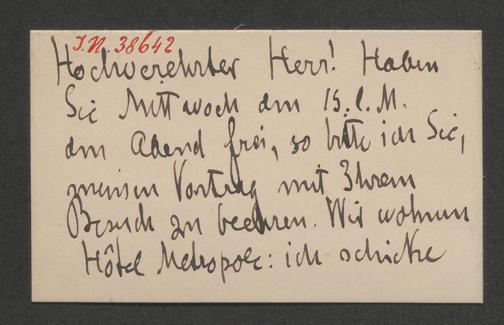 I.N. 38642
Hochverehrter Herr! Haben
Sie Mittwoch den 15. l. M.
den Abend frei, so bitte ich Sie,
meinen Vortrag mit Ihrem
Besuch zu beehren. Wir wohnen
Hôtel Metropole: ich schicke